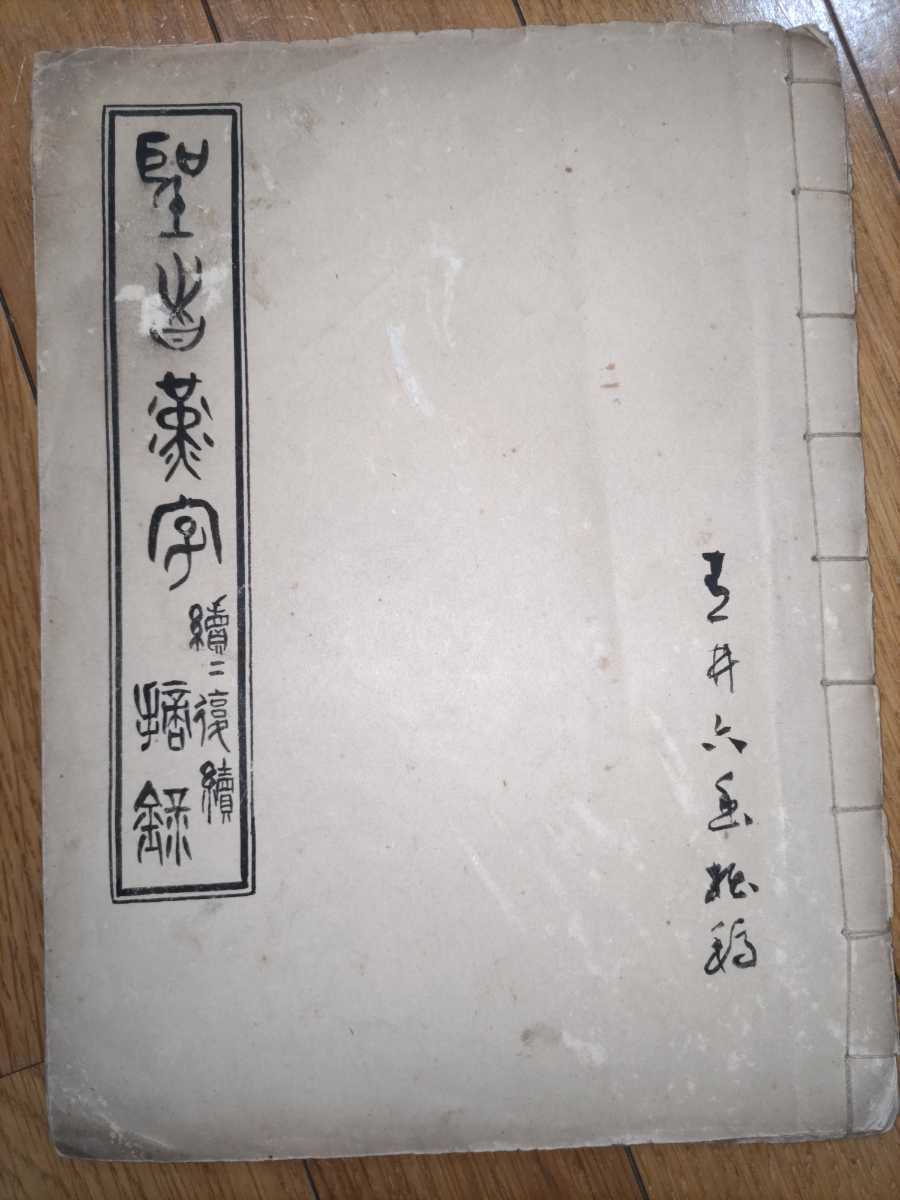 井六拙稿
聖書漢字
續二復續
摘録